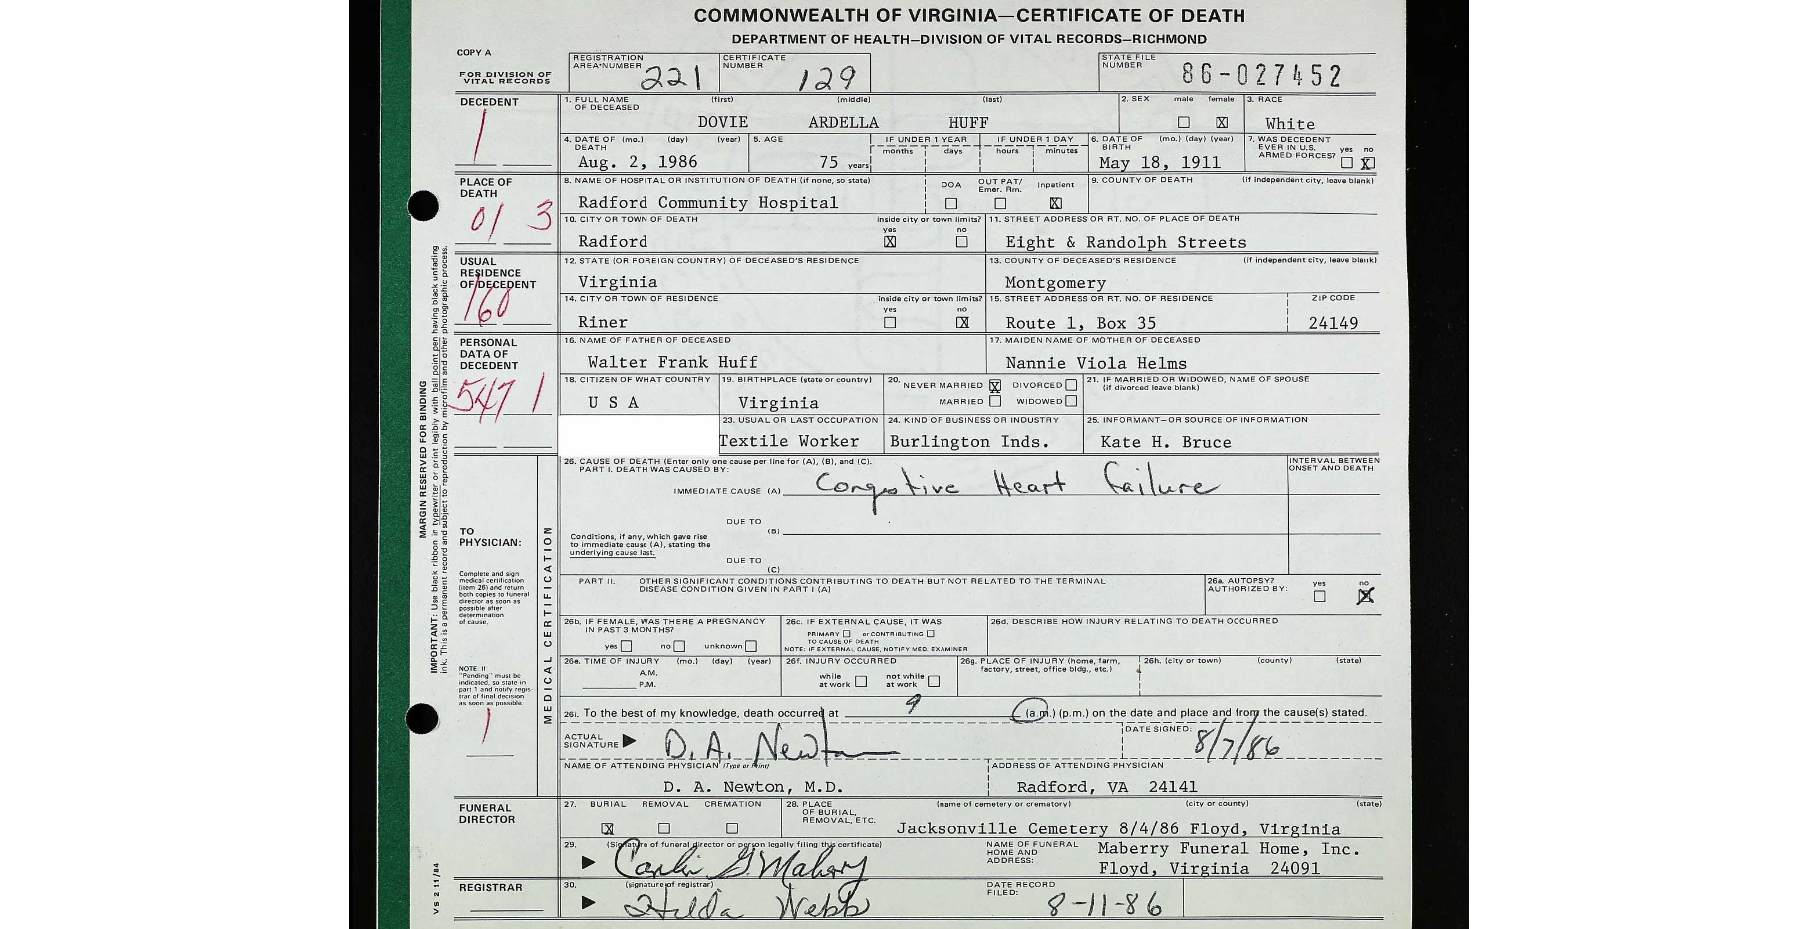 COMMONWEALTH OF VIRGINIA—CERTIFICATE OF DEATH
DEPARTMENT OF HEALTH—DIVISION OF VITAL RECORDS—RICHMOND
COPY A
FOR DIVISION OF VITAL RECORDS
REGISTRATION AREA NUMBER 221
CERTIFICATE NUMBER 129
STATE FILE NUMBER 86-027452
DECEDENT
1
1. FULL NAME OF DECEASED (first) (middle) (last)
DOVIE ARDELLA HUFF
2. SEX male female ☒
3. RACE
White
4. DATE OF DEATH (mo.) (day) (year)
Aug. 2, 1986
5. AGE
75 years
IF UNDER 1 YEAR months days
IF UNDER 1 DAY hours minutes
6. DATE OF BIRTH (mo.) (day) (year)
May 18, 1911
7. WAS DECEDENT EVER IN U.S. ARMED FORCES? yes no ☒
PLACE OF DEATH
01 3
8. NAME OF HOSPITAL OR INSTITUTION OF DEATH (if none, so state)
Radford Community Hospital
DOA OUT PAT/ Emer. Rm. Inpatient ☒
9. COUNTY OF DEATH (if independent city, leave blank)
10. CITY OR TOWN OF DEATH
Radford
inside city or town limits? yes ☒ no
11. STREET ADDRESS OR RT. NO. OF PLACE OF DEATH
Eight & Randolph Streets
USUAL RESIDENCE OF DECEDENT
160
12. STATE (OR FOREIGN COUNTRY) OF DECEASED'S RESIDENCE
Virginia
13. COUNTY OF DECEASED'S RESIDENCE (if independent city, leave blank)
Montgomery
14. CITY OR TOWN OF RESIDENCE
Riner
inside city or town limits? yes no ☒
15. STREET ADDRESS OR RT. NO. OF RESIDENCE
Route 1, Box 35
ZIP CODE
24149
PERSONAL DATA OF DECEDENT
547 1
16. NAME OF FATHER OF DECEASED
Walter Frank Huff
17. MAIDEN NAME OF MOTHER OF DECEASED
Nannie Viola Helms
18. CITIZEN OF WHAT COUNTRY
U S A
19. BIRTHPLACE (state or country)
Virginia
20. NEVER MARRIED ☒ DIVORCED
MARRIED WIDOWED
21. IF MARRIED OR WIDOWED, NAME OF SPOUSE
(if divorced leave blank)
23. USUAL OR LAST OCCUPATION
Textile Worker
24. KIND OF BUSINESS OR INDUSTRY
Burlington Inds.
25. INFORMANT—OR SOURCE OF INFORMATION
Kate H. Bruce
MARGIN RESERVED FOR BINDING
IMPORTANT: Use black ribbon in typewriter or print legibly with ball point pen having black unfading
ink. This is a permanent record and subject to reproduction by microfilm and other photographic process.
TO PHYSICIAN:
Complete and sign medical certification (item 26) and return both copies to funeral director as soon as possible after determination of cause.
NOTE: If "Pending" must be indicated, so state in part 1 and notify registrar of final decision as soon as possible.
1
MEDICAL CERTIFICATION
26. CAUSE OF DEATH (Enter only one cause per line for (A), (B), and (C).
PART I. DEATH WAS CAUSED BY:
INTERVAL BETWEEN ONSET AND DEATH
IMMEDIATE CAUSE (A) Congestive Heart Failure
DUE TO
(B)
Conditions, if any, which gave rise to immediate cause (A), stating the underlying cause last.
DUE TO
(C)
PART II. OTHER SIGNIFICANT CONDITIONS CONTRIBUTING TO DEATH BUT NOT RELATED TO THE TERMINAL
DISEASE CONDITION GIVEN IN PART I (A)
26a. AUTOPSY? AUTHORIZED BY: yes no ☒
26b. IF FEMALE, WAS THERE A PREGNANCY IN PAST 3 MONTHS?
yes no unknown
26c. IF EXTERNAL CAUSE, IT WAS
PRIMARY or CONTRIBUTING
TO CAUSE OF DEATH
NOTE: IF EXTERNAL CAUSE, NOTIFY MED. EXAMINER
26d. DESCRIBE HOW INJURY RELATING TO DEATH OCCURRED
26e. TIME OF INJURY (mo.) (day) (year)
A.M.
P.M.
26f. INJURY OCCURRED
while at work not while at work
26g. PLACE OF INJURY (home, farm, factory, street, office bldg., etc.)
26h. (city or town) (county) (state)
26i. To the best of my knowledge, death occurred at 9 (a.m.) (p.m.) on the date and place and from the cause(s) stated.
ACTUAL SIGNATURE D. A. Newton
DATE SIGNED: 8/7/86
NAME OF ATTENDING PHYSICIAN (Type or Print)
D. A. Newton, M.D.
ADDRESS OF ATTENDING PHYSICIAN
Radford, VA 24141
FUNERAL DIRECTOR
27. BURIAL ☒ REMOVAL CREMATION
28. PLACE OF BURIAL, REMOVAL, ETC. (name of cemetery or crematory) (city or county) (state)
Jacksonville Cemetery 8/4/86 Floyd, Virginia
29. (Signature of funeral director or person legally filing this certificate)
NAME OF FUNERAL HOME AND ADDRESS:
Maberry Funeral Home, Inc.
Floyd, Virginia 24091
REGISTRAR
30. (signature of registrar)
Hilda Webb
DATE RECORD FILED: 8-11-86
VS 2 11/84